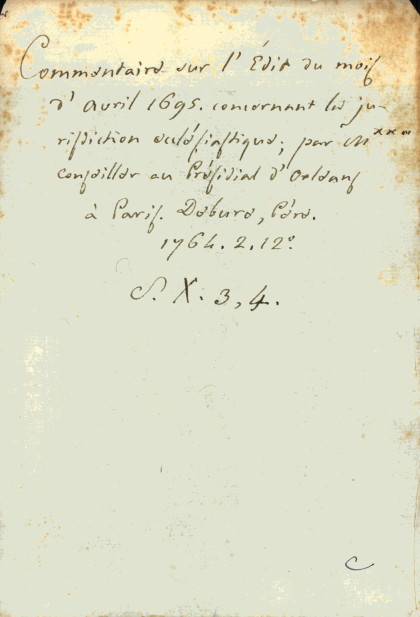 Commentaire sur l'Édit du mois
d'avril 1695. concernant la ju-
risdiction ecclésiastique; par M***
conseiller au Présidial d'Orleans
à Paris. Debure, Père.
1764. 2. 12°.
S. X. 3, 4.
C